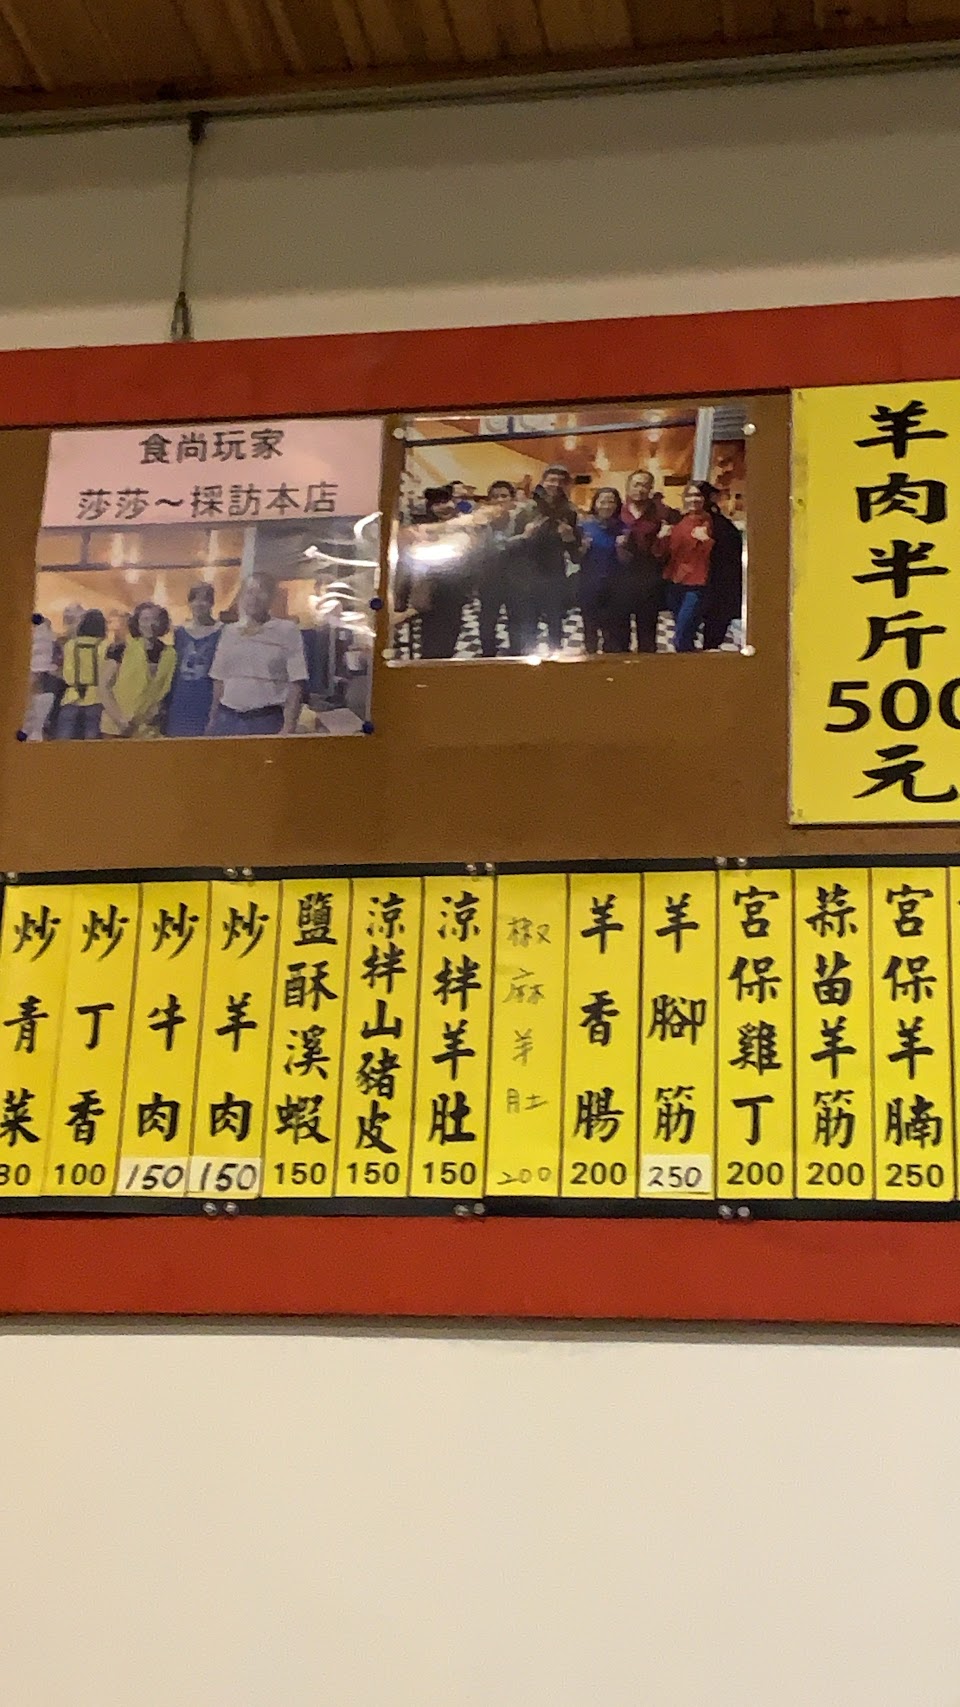 食尚玩家
莎莎～採訪本店
羊肉半斤500元
炒青菜 80
炒丁香 100
炒牛肉 150
炒羊肉 150
鹽酥溪蝦 150
涼拌山豬皮 150
涼拌羊肚 150
椒麻羊肚 200
羊香腸 200
羊腳筋 250
宮保雞丁 200
蒜苗羊筋 200
宮保羊腩 250